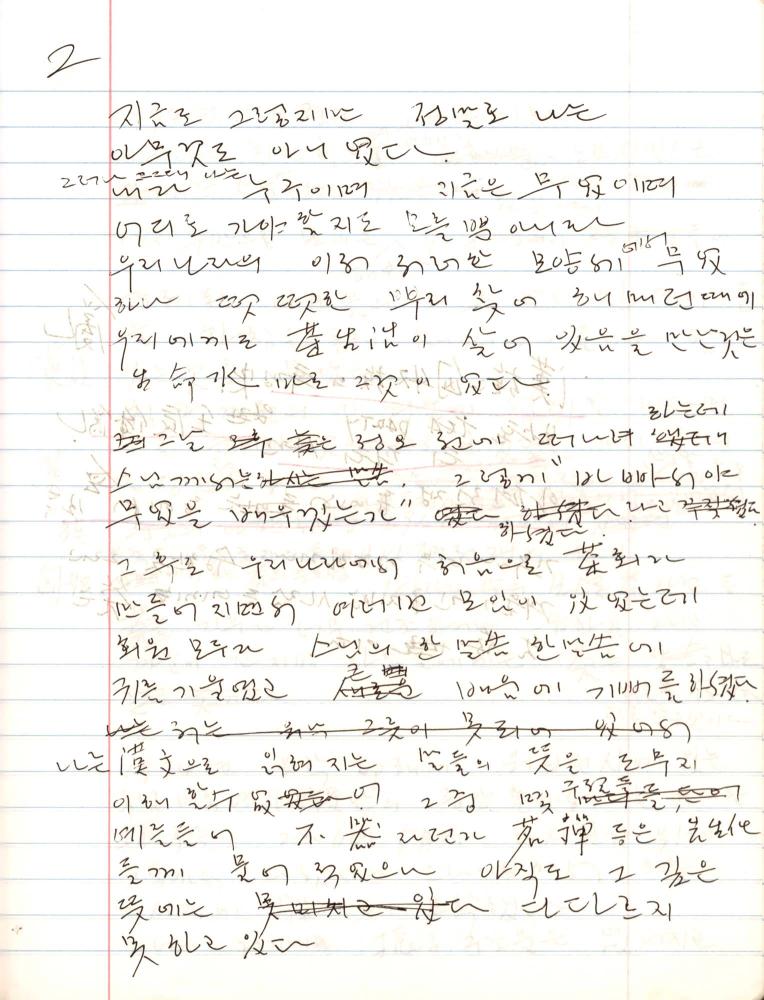 2
지금도 그렇지만 정말로 나는
아무것도 아니 였다.
그러나 그때 나는
내가 누구이며 지금은 무었이며
어디로 가야 할지도 모를뿐 아니라
우리나라의 이러 저러한 모양에 에서 무었
하나 떳떳한 뿌리 찾어 헤매던때에
우리에게도 茶生活이 살어 있음을 만난것은
生命水 바로 그것이 였다.
그날 오후 정오 떠나려 라는데
스님께서는 사는 말씀. 그렇게 "바빠서야
무었을 배우겠는가" 였다 하셨다 라고 꾸짖었다.
하셨다.
그 후로 우리나라에서 처음으로 茶회가
만들어지면서 여러가지 모임이 있었는데
회원 모두가 스님의 한말씀 한말씀에
귀를 기울였고 큰 새로운 배움에 기뻐를 하셨다.
나는 저는 그릇이 못되어 있어서
나는 漢文으로 읽혀 지는 말들의 뜻을 도무지
이해 할수 없었 어 그중 몇
예를들어 不器 라던가 茗禪 등은 선생님
들께 물어 적었으나 아직도 그 깊은
뜻에는 못미치고 있다 다다르지
못하고 있다